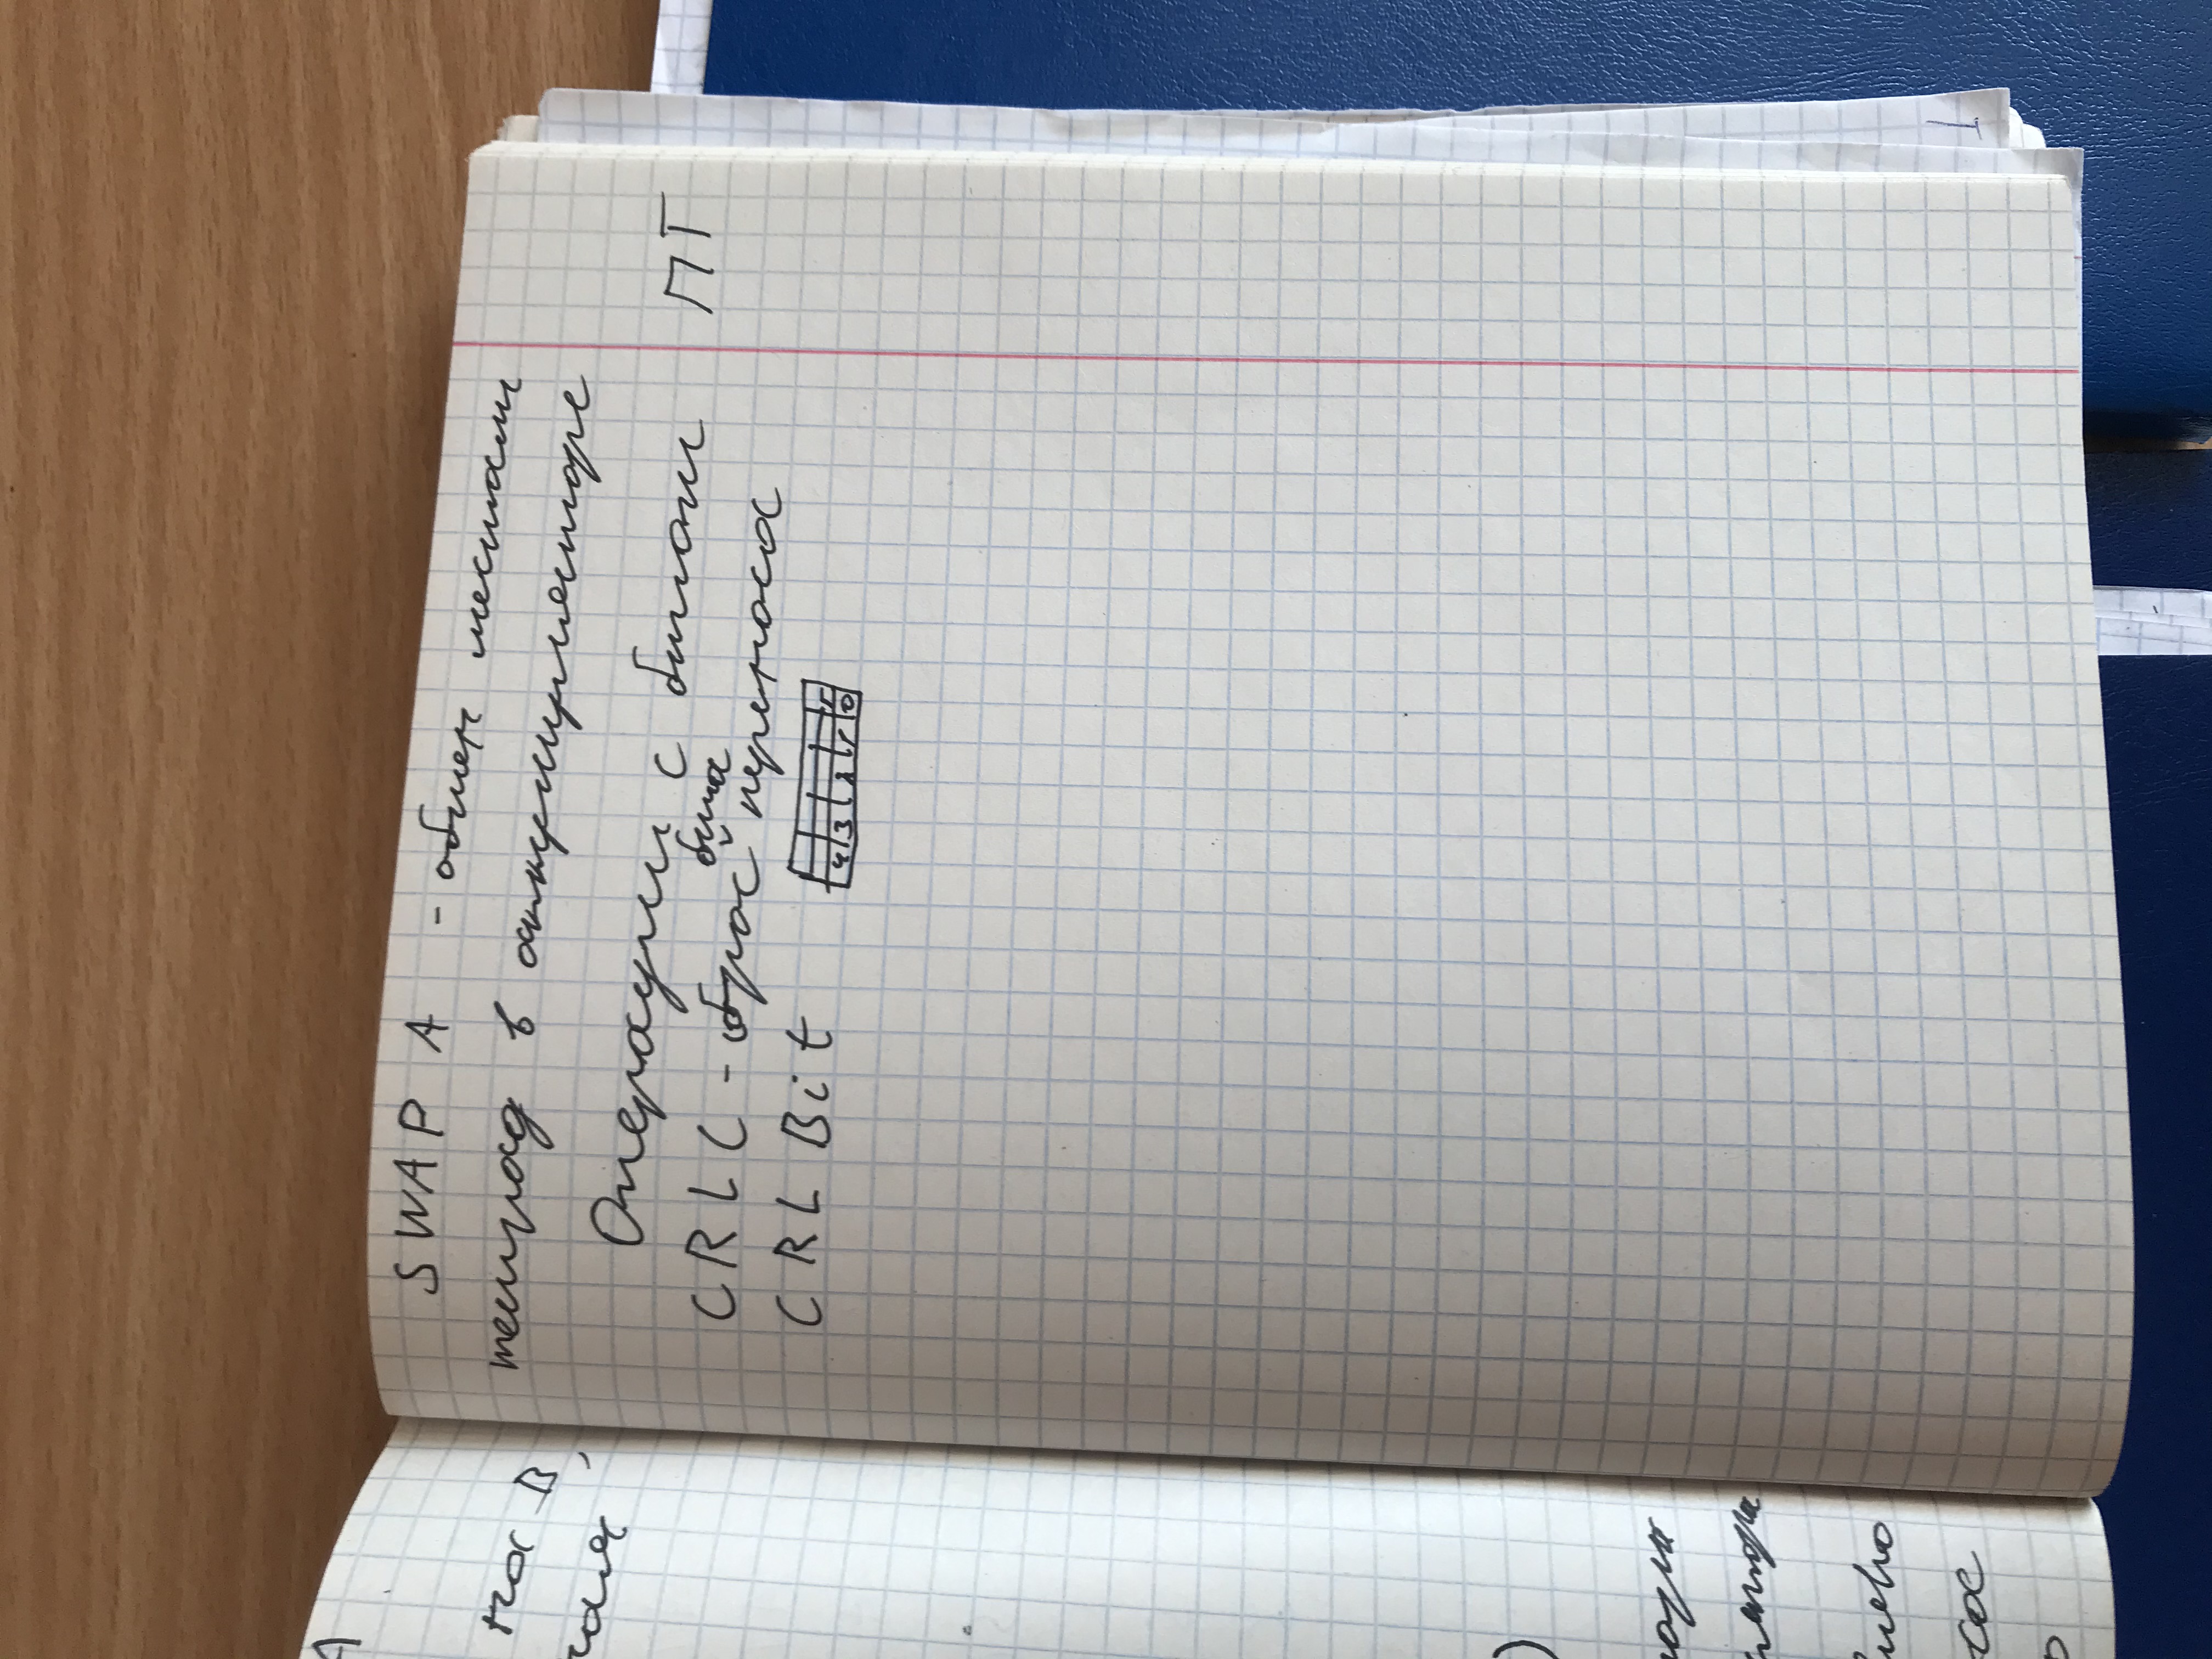 А
на В,
SWAP A - обмен местами
тетрад в аккумуляторе
Операции с битами ПТ
CRLC - сброс бита переноса
CRL Bit
4 3 2 1 0
)